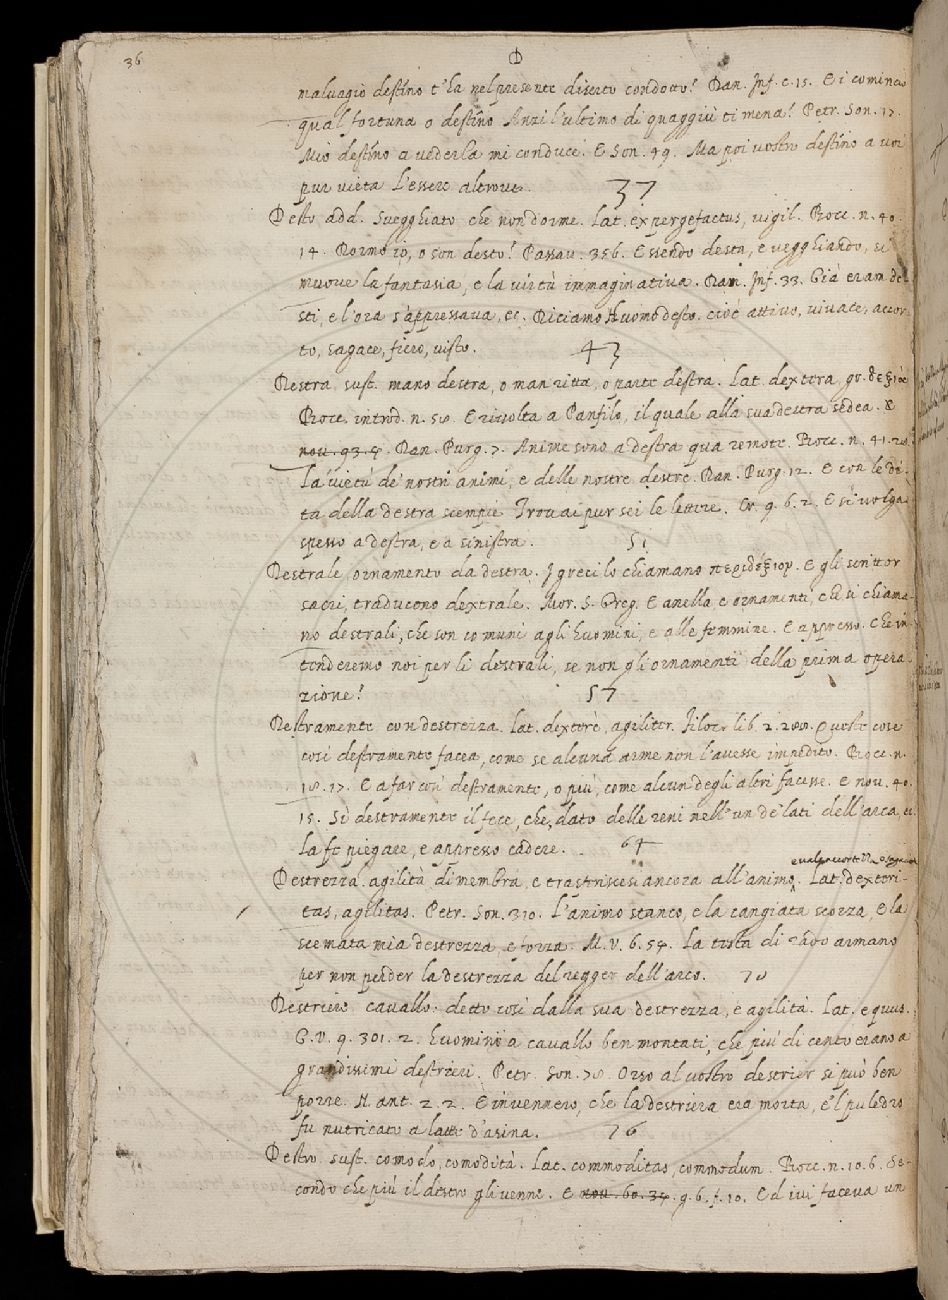 36
D
malvagio destino t'ha nel presente diserto condotto? Dan. Inf. c. 15. E i cominciò
qual fortuna o destino Anzi l'ultimo di quaggiù ti mena? Petr. Son. 17.
Mio destino a vederla mi conduce. E Son. 49. Ma poi vostro destino a voi
pur vieta L'essere altrove.
37
Desto add. Svegghiato che non dorme. Lat. expergefactus, vigil. Bocc. n. 40.
14. Dormo io, o son desto? Passav. 356. Essendo desta, e vegghiando, si
muove la fantasia, e la virtù immaginativa. Dan. Inf. 33. Già eram de-
sti, e l'ora s'appressava, ec. Diciamo Huomo desto. cioè attivo, vivace, accor-
to, sagace, fiero, visto.
43
Destra, sust. mano destra, o man ritta, o parte destra. Lat. dextera, gr. δεξιὸς
Bocc. introd. n. 50. E rivolta a Panfilo, il quale alla sua destra sedea. E
nov. 93. 4. Dan. Purg. 7. Anime sono a destra qua remote. Bocc. n. 41. 20.
La virtù de' nostri animi, e delle nostre destre. Dan. Purg. 12. E con le di-
ta della destra scempie Trovai pur sei le lettere. Cr. 9. 6. 2. E si volga
spesso a destra, e a sinistra.
51
Destrale, ornamento da destra. I greci lo chiamano περιδέξιον. E gli scrittor
sacri, traducono dextrale. Mor. S. Greg. E anella e ornamenti, che si chiama-
no destrali, che son comuni agli huomini, e alle femmine. E appresso. Che in-
tenderemo noi per li destrali, se non gli ornamenti della prima opera-
zione?
57
Destramente con destrezza. Lat. dexterè, agiliter. Filoc. lib. 2. 280. Queste cose
così destramente facea, come se alcuna arme non l'avesse impedito. Bocc. n.
18. 17. E a far così destramente, o più, come alcun degli altri facesse. E nov. 40.
15. Sì destramente il fece, che, dato delle reni nell'un de' lati dell'arca, ec.
la fe piegare, e appresso cadere.
64
e vale accortezza e sagacità
Destrezza. agilità di membra, e trasferiscesi ancora all'animo. Lat. dexteri-
tas, agilitas. Petr. Son. 310. L'animo stanco, e la cangiata scorza, E la
scemata mia destrezza, e forza. M. V. 6. 54. La testa di rado armano
per non perder la destrezza del regger dell'arco.
70
Destriere cavallo. detto così dalla sua destrezza, e agilità. Lat. equus.
G. V. 9. 301. 2. huomini a cavallo ben montati, che più di cento erano a
grandissimi destrieri. Petr. Son. 78. Orso al vostro destrier si può ben
porre. N. ant. 2. 2. E invennero, che la destriera era morta, e 'l puledro
fu nutricato a latte d'asina.
76
Destro. sust. comodo, comodità. Lat. commoditas, commodum. Bocc. n. 10. 6. Se-
condo che più il destro gli venne. E nov. 60. 34. g. 6. f. 10. E d ivi faceva un